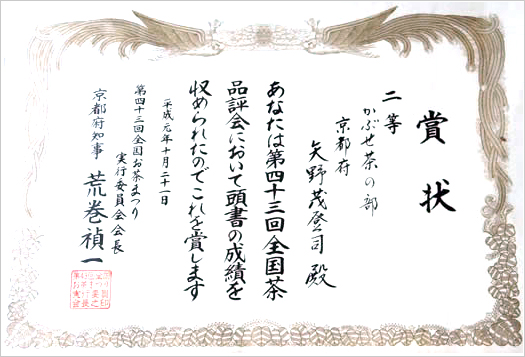 賞状
二等
かぶせ茶の部
京都府
矢野茂登司 殿
あなたは第四十三回全国茶
品評会において頭書の成績を
収められたのでこれを賞します
平成元年十月二十一日
第四十三回全国お茶まつり
実行委員会会長
京都府知事 荒巻禎一